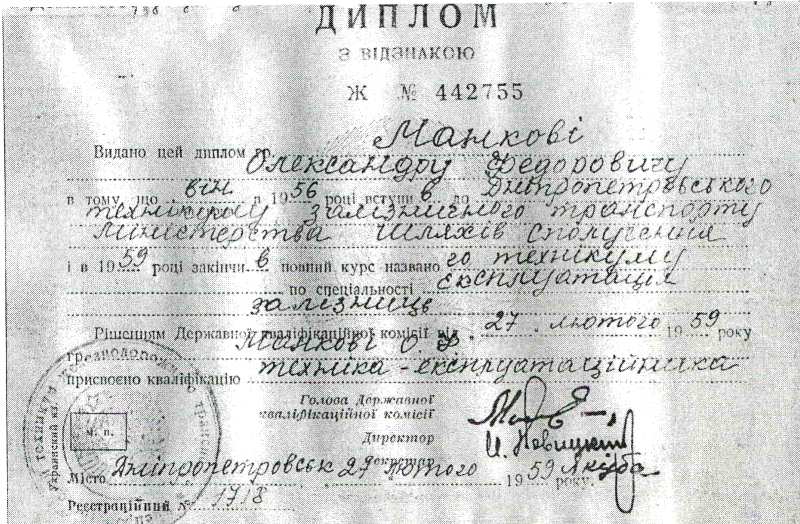 ДИПЛОМ
З ВІДЗНАКОЮ
Ж № 442755
Видано цей диплом гр. Манкові
Олександру Федоровичу
в тому, що він в 1956 році вступив до Дніпропетровського
технікуму залізничного транспорту
Міністерства шляхів сполучення
і в 1959 році закінчив повний курс названого технікуму
по спеціальності експлуатація
залізниць
Рішенням Державної кваліфікаційної комісії від 27 лютого 1959 року
гр. Манкові О. Ф.
присвоєно кваліфікацію техніка-експлуатаційника
Голова Державної
кваліфікаційної комісії
Директор
И. Новицкий
Секретар
м. п.
Місто Дніпропетровськ 27 лютого 1959 року.
Реєстраційний № 1718